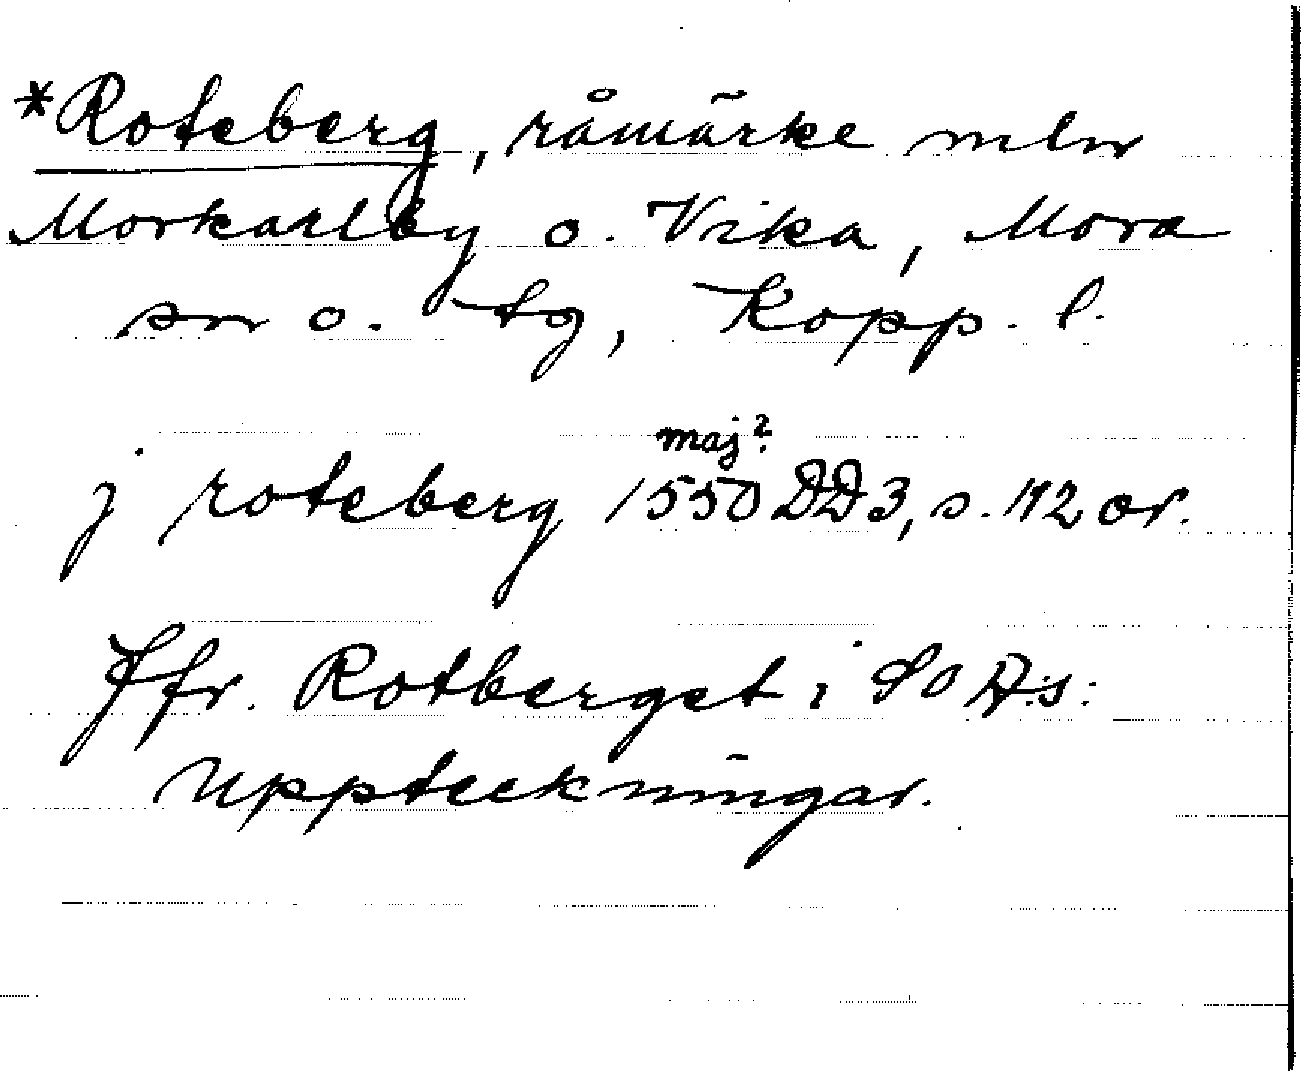 *Roteberg, råmärke mln
Morkarlby o. Vika, Mora
sn o. tg, Kopp. l.
maj?
j roteberg 1550 DD 3, s. 112 or.
Jfr. Rotberget i SOA:s:
Uppteckningar.